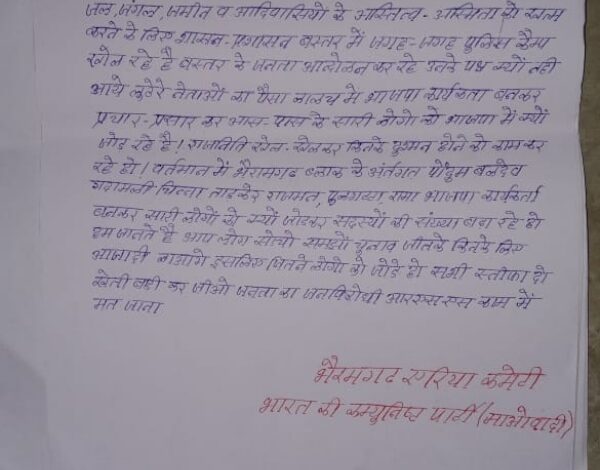 जल, जंगल, जमीन व आदिवासियों के अस्तित्व-अस्मिता को खत्म
करने के लिए शासन-प्रशासन बस्तर में जगह-जगह पुलिस कैम्प
खोल रहे है बस्तर के जनता आन्दोलन कर रहे उनके पक्ष क्यों नही
आये लुटेरे नेताओं का पैसा लालच मे भाजपा कार्यकता बनकर
प्रचार-प्रसार कर आस-पास के सारी लोगो को भाजपा में क्यों
जोड रहे है! राजनिति खेल-खेलकर किसके दुश्मन होने को काम कर
रहे हो! वर्तमान में भैरामगढ ब्लाक के अंर्तगत पोंदुम बलदेव
चिन्ना ताडकेर राजमन, रामा भाजपा कार्यकर्ता
बनकर सारी लोगो को क्यों जोडकर सदस्यों की संख्या बडा रहे हो
हम जानते है आप लोग सोचो समझो चुनाव जीतके किसके लिए
आजादी लाओगे इसलिए जितने लोगो को जोडे हो सभी स्तीफा दो
खेती बाडी कर जीओ जनता का जनविरोधी आरएसएस काम में
मत जाना
भैरमगढ एरिया कमेटी
भारत की कम्युनिष्ट पार्टी (माओवादी)